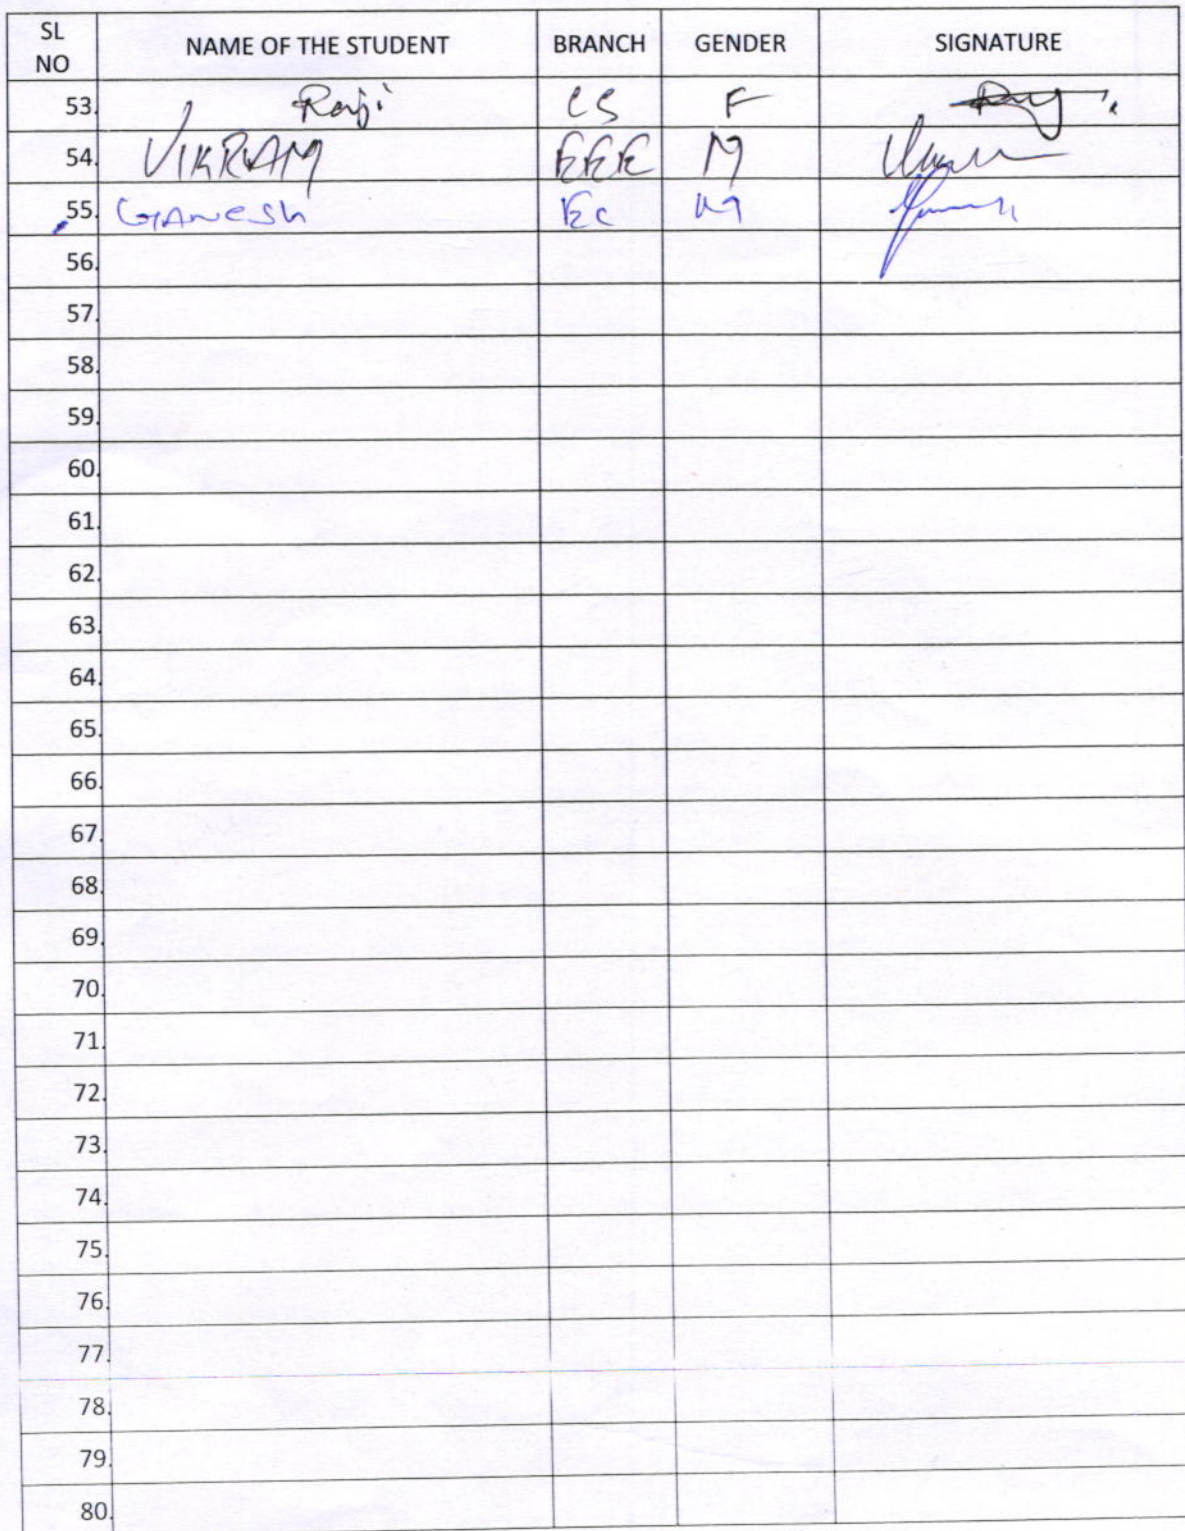 SL NO NAME OF THE STUDENT BRANCH GENDER SIGNATURE
53. Raji CS F
54. VIKRAM EEE M
55. GANESh EC M
56.
57.
58.
59.
60.
61.
62.
63.
64.
65.
66.
67.
68.
69.
70.
71.
72.
73.
74.
75.
76.
77.
78.
79.
80.